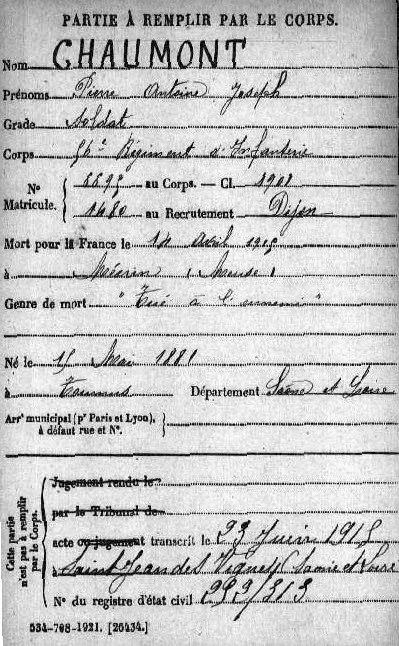 PARTIE À REMPLIR PAR LE CORPS.
Nom CHAUMONT
Prénoms Pierre Antoine Joseph
Grade Soldat
Corps 56e Régiment d'Infanterie
N° Matricule. { 6693 au Corps. — Cl. 1901
1480 au Recrutement Dijon
Mort pour la France le 14 avril 1915
à Mécrin (Meuse)
Genre de mort "Tué à l'ennemi"
Né le 15 Mai 1881
à Tournus Département Saône et Loire
Arrt municipal (pr Paris et Lyon), à défaut rue et N°.
Cette partie n'est pas à remplir par le Corps.
Jugement rendu le
par le Tribunal de
acte ou jugement transcrit le 23 Juin 1915
à Saint Jean des Vignes (Saône et Loire
N° du registre d'état civil 293/313
534-708-1921. [26434.]